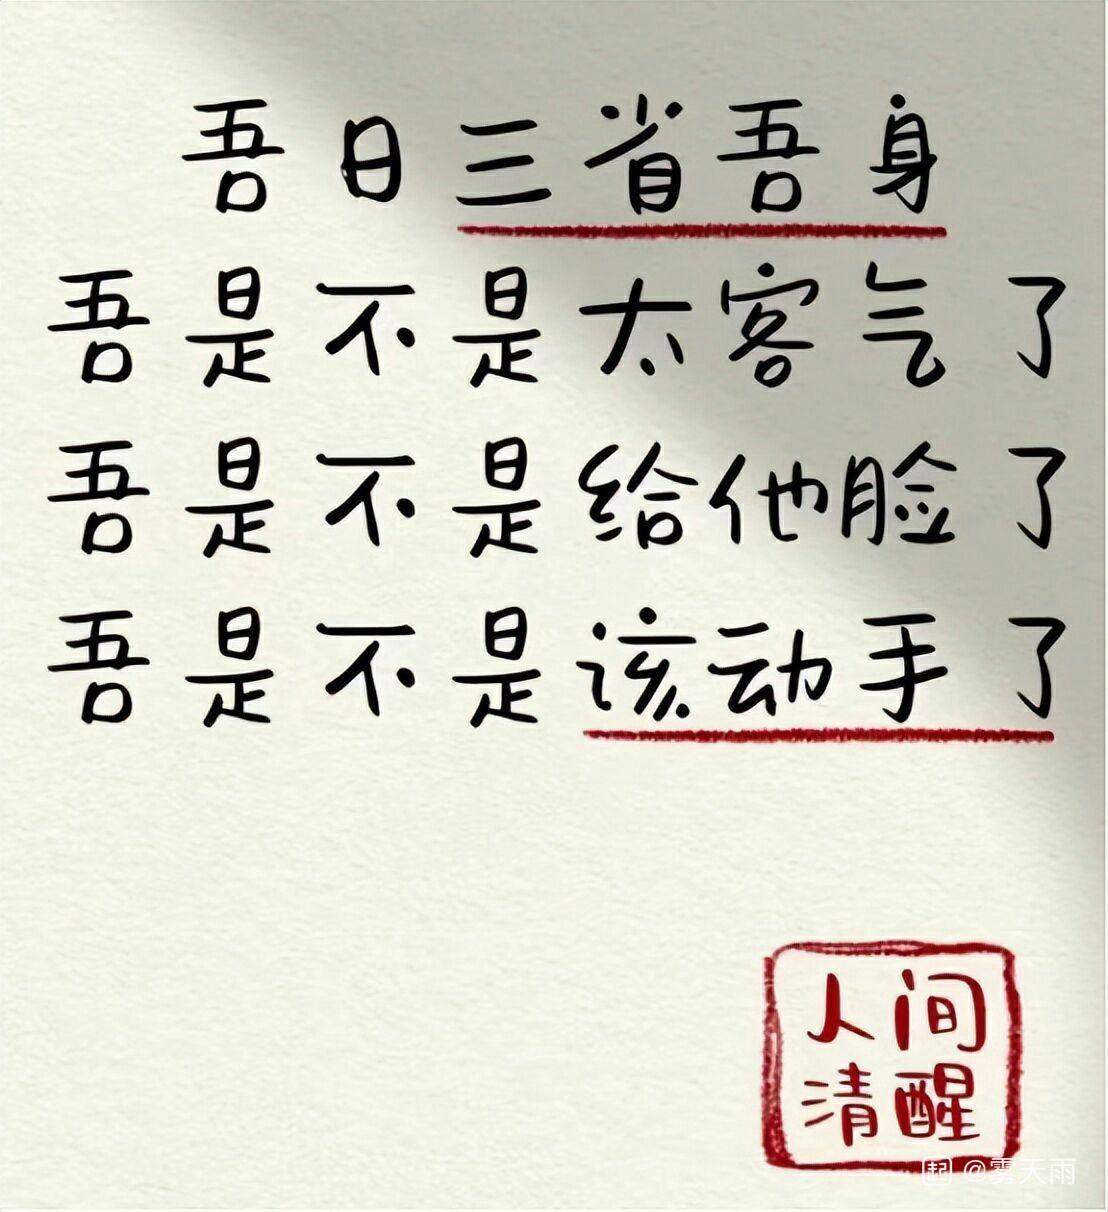 吾日三省吾身
吾是不是太客气了
吾是不是给他脸了
吾是不是该动手了
人间
清醒
起 @雾天雨